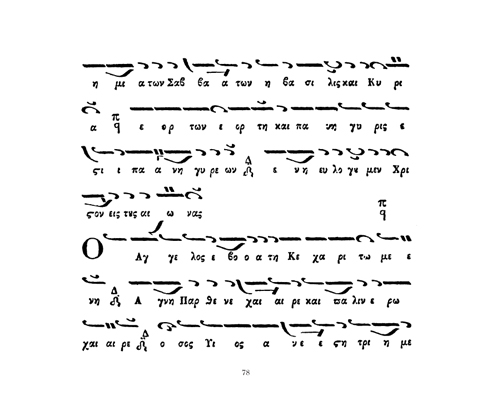 η με α των Σαβ βα α των η βα σι λις και Κυ ρι
α π ϥ ε ορ των ε ορ τη και πα νη γυ ρις ε
ϛι ι πα α νη γυ ρε ων Δ ε νη ευ λο γυ μεν Χρι
ϛον εις τυς αι ω νας π ϥ
Ο Αγ γε λος ε βο ο α τη Κε χα ρι τω με ε
νη Δ Α γνη Παρ θε νε χαι αι ρε και πα λιν ε ρω
χαι αι ρε Δ ο σος Υι ος α νε ε ϛη τρι η με
78